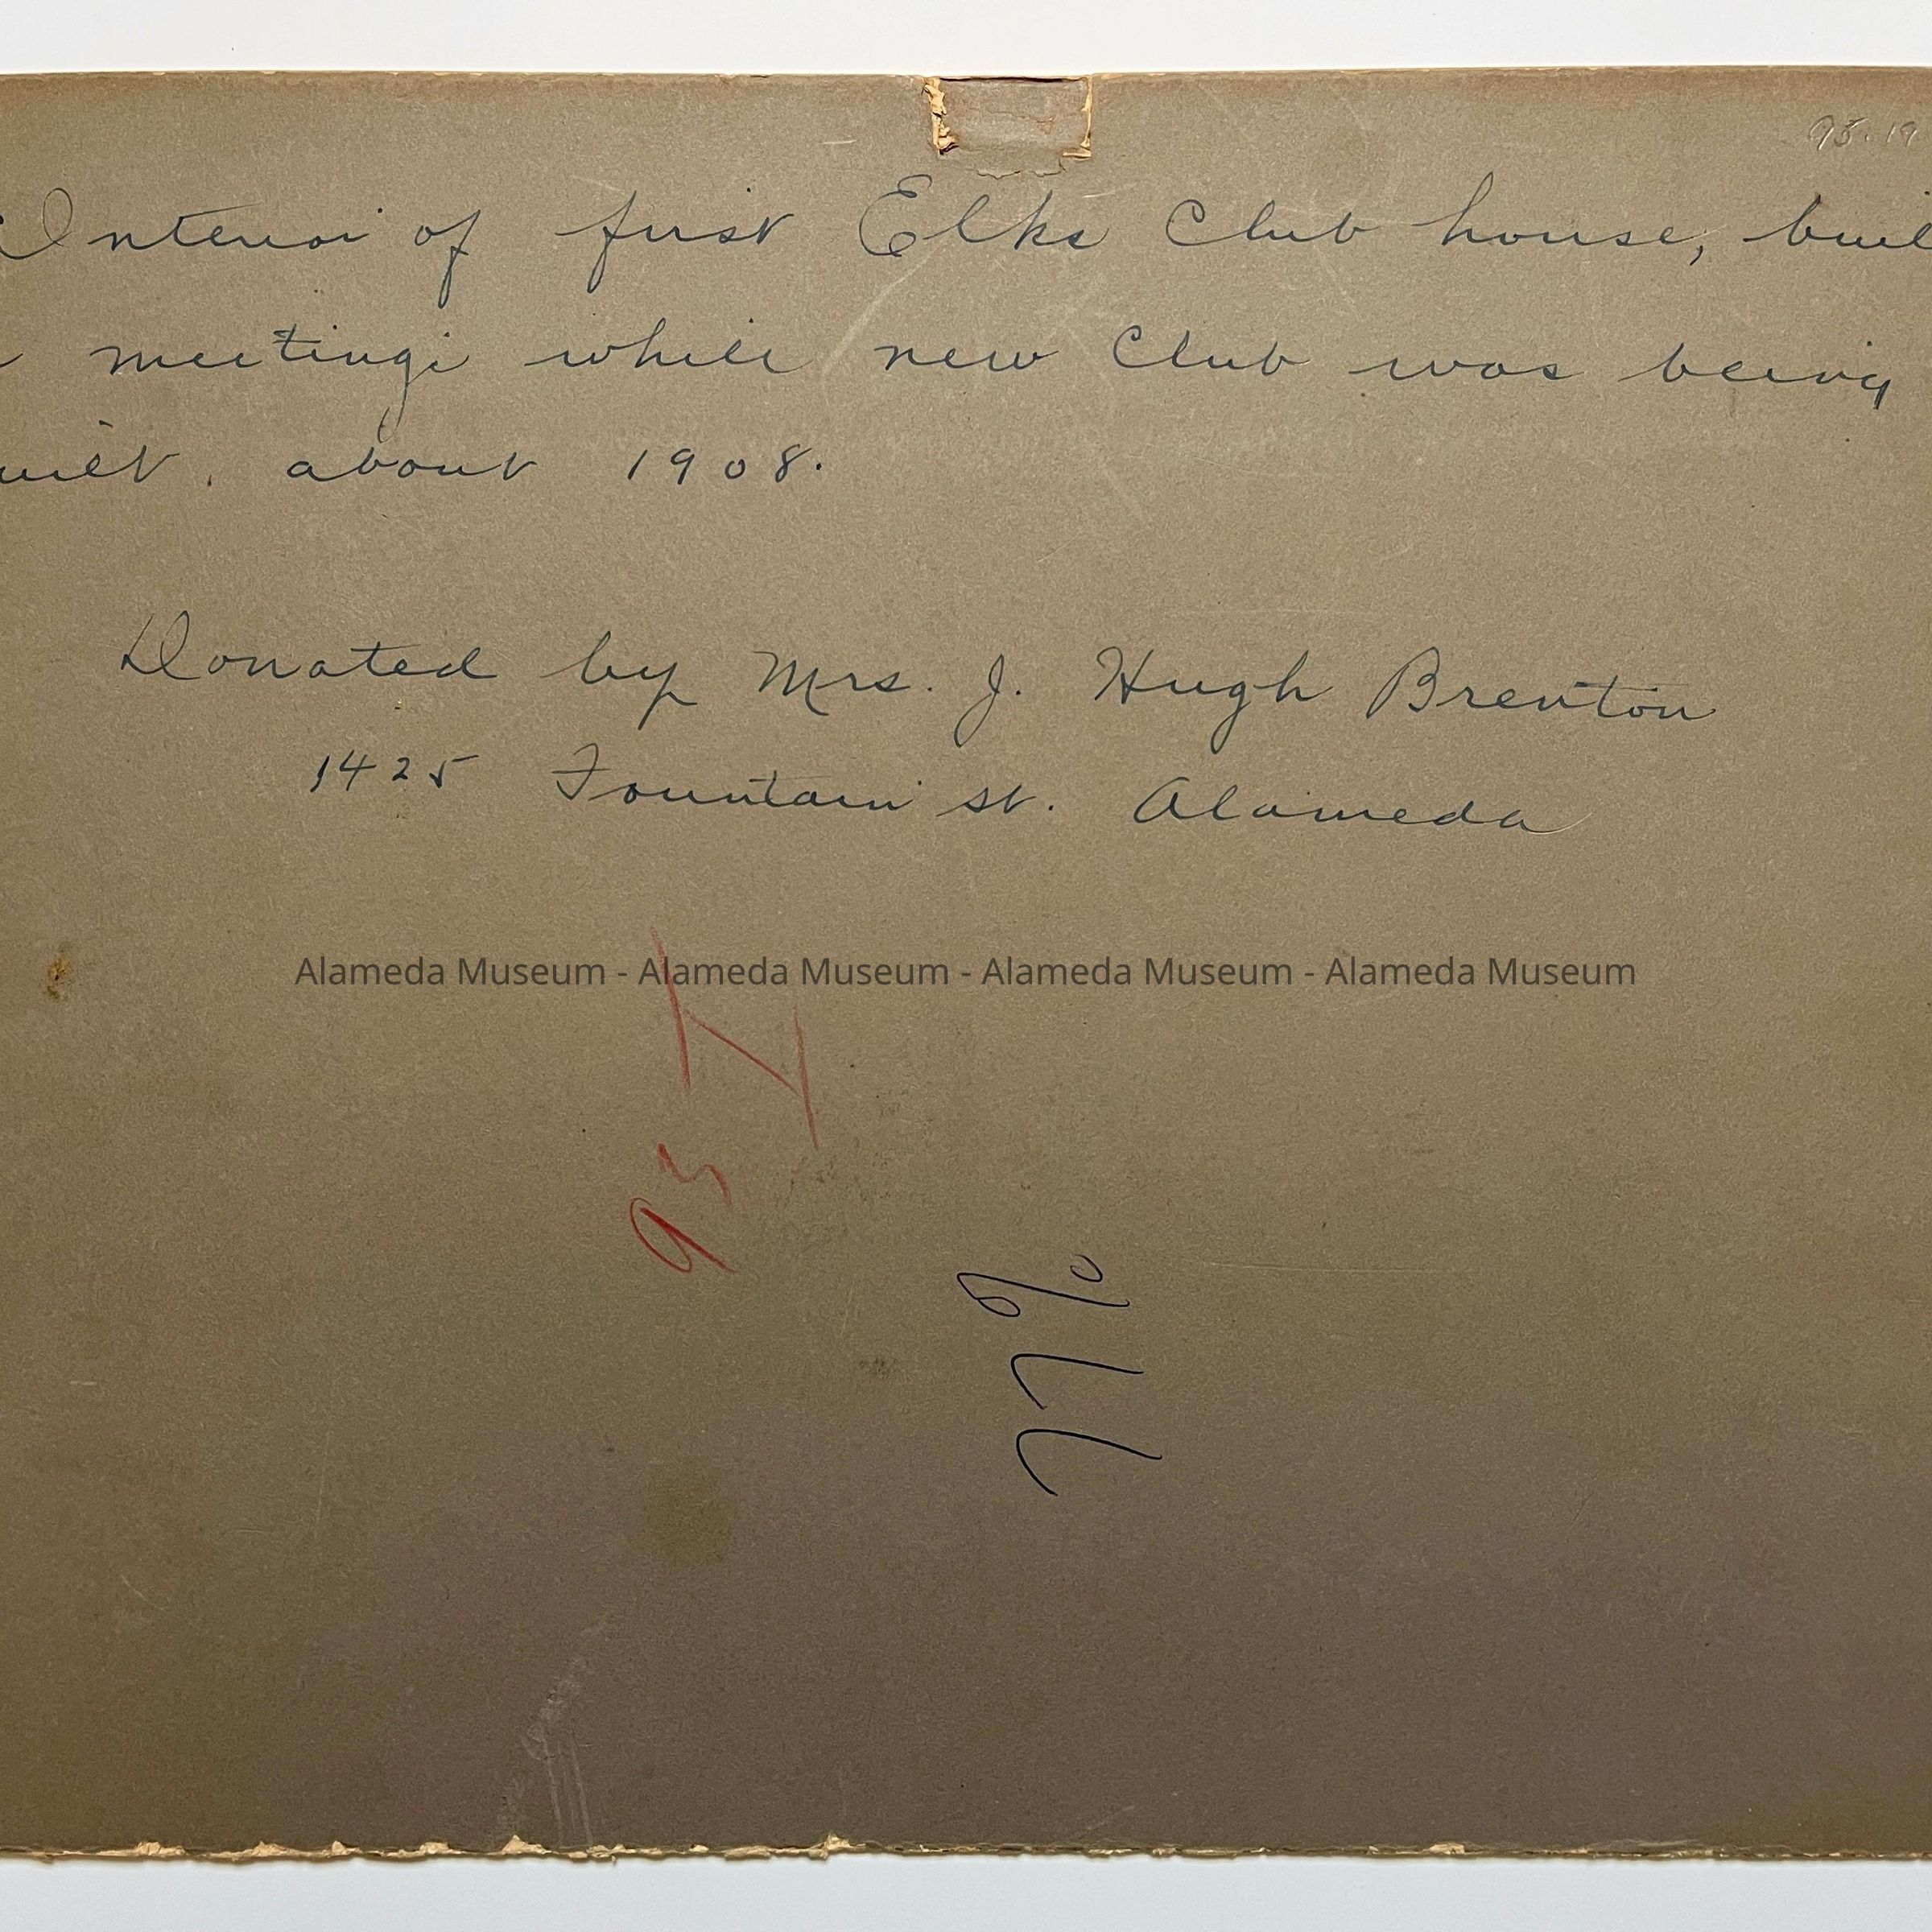 95.19
Interior of first Elks Club house, buil
meetings while new Club was being
uilt, about 1908.
Donated by Mrs. J. Hugh Brenton
1425 Fountain st. Alameda
Alameda Museum - Alameda Museum - Alameda Museum - Alameda Museum
95